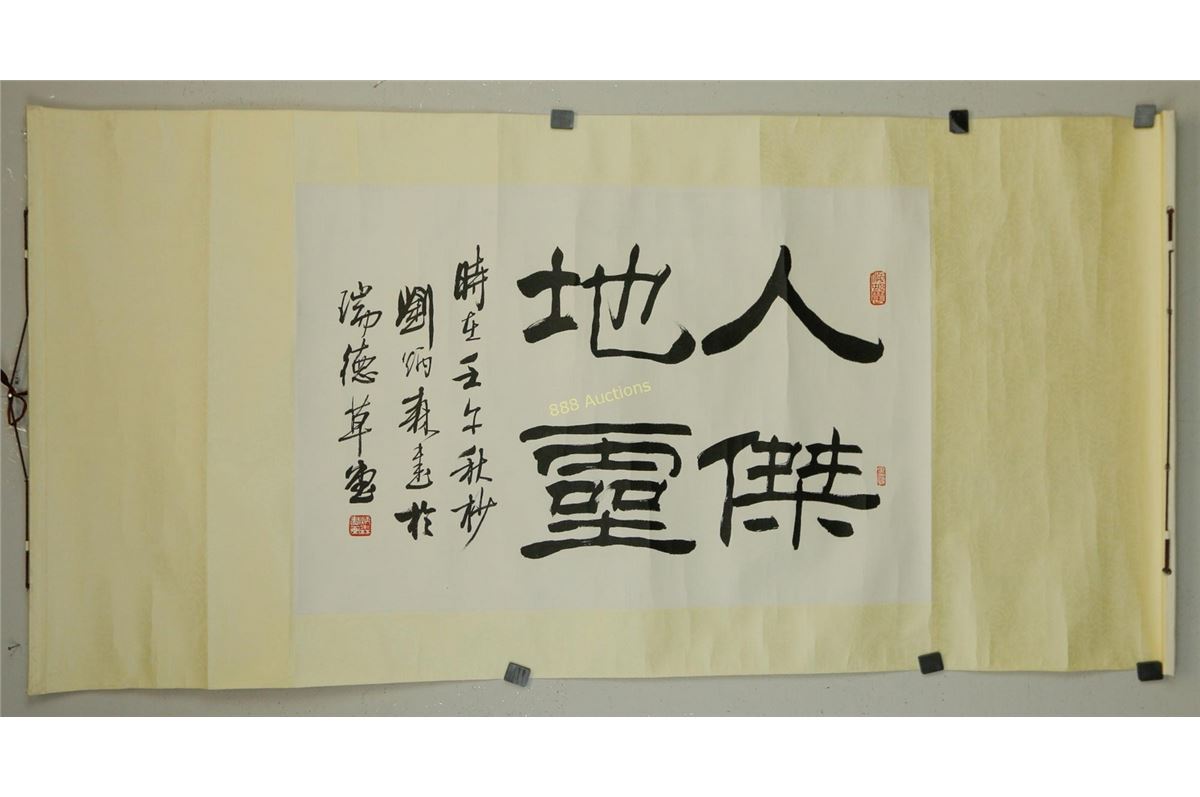 人傑
地靈
時在壬午秋杪
劉炳森書於
瑞德草堂
888 Auctions